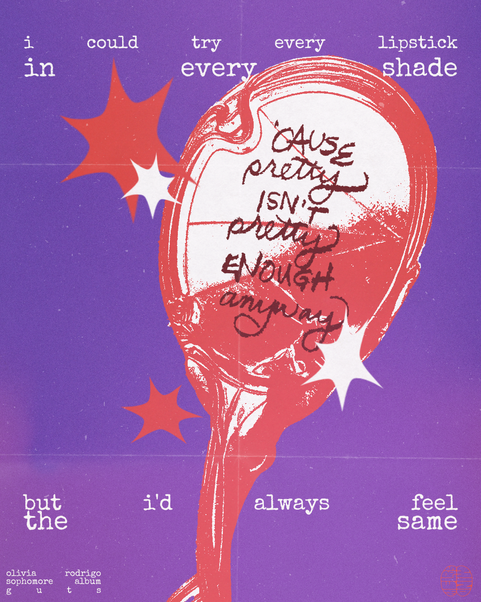 i could try every lipstick
in every shade
'CAUSE
pretty
ISN'T
pretty
ENOUGH
anyway
but i'd always feel
the same
olivia rodrigo
sophomore album
g u t s